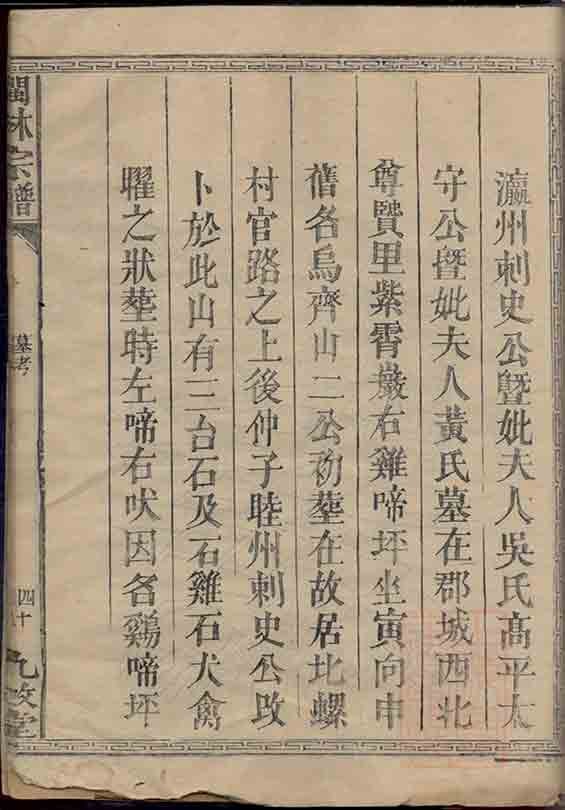 瀛州刺史公暨妣夫人吳氏高平太
守公暨妣夫人黃氏墓在郡城西北
尊賢里紫霄巖右雞啼坪坐寅向申
舊名烏齊山二公初塟在故居北螺
村官路之上後仲子睦州刺史公改
卜於此山有三台石及石雞石犬禽
曜之狀塟時左啼右吠因名鷄啼坪
閩林宗譜
墓考
四十
九牧堂